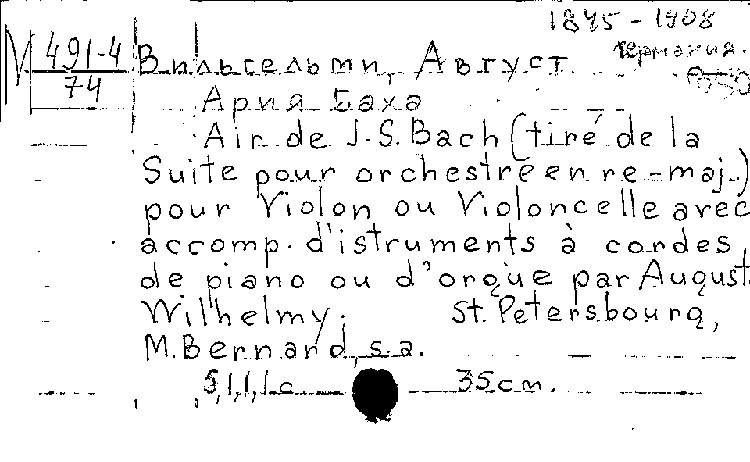 1845 - 1908
Германия.
М 491-4
74
Вильгельми, Август
Ария Баха
Air de J.S. Bach (tiré de la
Suite pour orchestre en re-maj.)
pour Violon ou Violoncelle avec
accomp. d'istruments à cordes,
de piano ou d'orgue par August
Wilhelmy. St. Petersbourg,
M. Bernard, s.a.
5,1,1,1 с. 35 см.